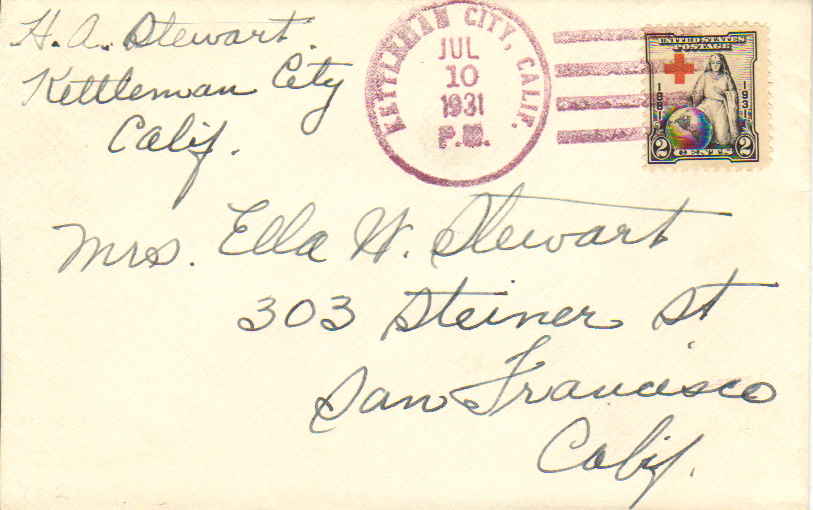 H. A. Stewart.
Kettleman City
Calif.
KETTLEMAN CITY, CALIF.
JUL
10
1931
P.M.
UNITED STATES
POSTAGE
1881
1931
2 CENTS 2
Mrs. Ella W. Stewart
303 Steiner St
San Francisco
Calif.